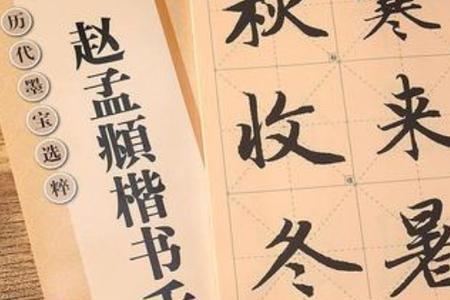 历代墨宝选粹
赵孟頫楷书千
寒来暑
秋收冬